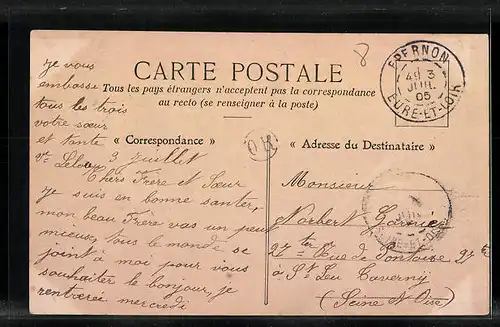 CARTE POSTALE
Tous les pays étrangers n'acceptent pas la correspondance
au recto (se renseigner à la poste)
« Correspondance »
« Adresse du Destinataire »
8
EPERNON
3
JUIL
05
EURE-ET-LOIR
OR
je vous
embrasse
tous les trois
votre sœur
et tante
3 juillet
Chers Frère et Sœur
je suis en bonne santer,
mon beau Frère vas un peu
mieux, tous le monde se
joint à moi pour vous
souhaiter le bonjour, je
rentrerai mercredi
Monsieur
Norbert Garnier
27 ter Rue de Pontoise 27 ter
à St Leu Taverny
(Seine et Oise)